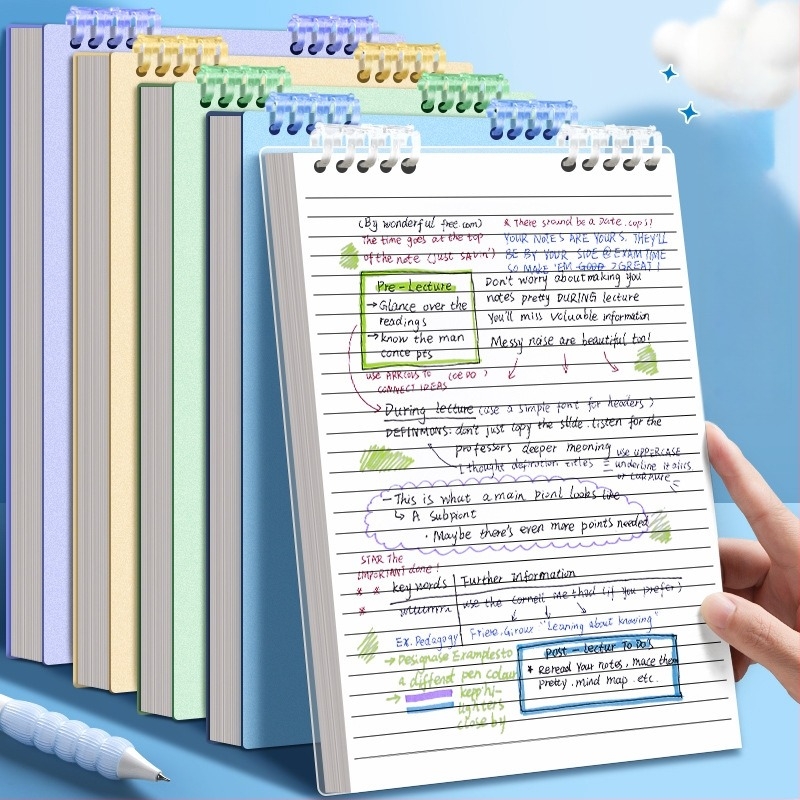 (By wonderful free.com)
The time goes at the top
of the note (just savin')
& There snound be a Date, cops!
YOUR NOTES ARE YOURS. THEY'LL
BE BY YOUR SIDE @ EXAM TIME
SO MAKE 'EM GOOD ? GREAT!
Pre-Lecture
→ Glance over the
readings
→ know the man
conce pts
Don't worry about making you
notes pretty DURING lecture
You'll miss valuable information
Messy noise are beautiful too!
use ARROWS TO (oe DO)
CONNECT IDEAS
During lecture (use a simple font for headers)
DEFINMONS: don't just copy the slide. listen for the
professors deeper meaning
I thought definition titles
use UPPERCASE
underline
or
- This is what a main pionl looks like
↳ A Subpiont
· Maybe there's even more points needed
STAR The
IMPORTANT done!
* *
*
key words
Further Information
use the cornell me thod (if you prefer)
Ex. Pedagogy
Friere, Giroux "Leaning about knowing"
→ Designase Examplesto
a differst pen colour
→ kepp hi-
lighters
close by
post - lectur To Do's
* Reread your notes, mace them
pretty. mind map. etc.